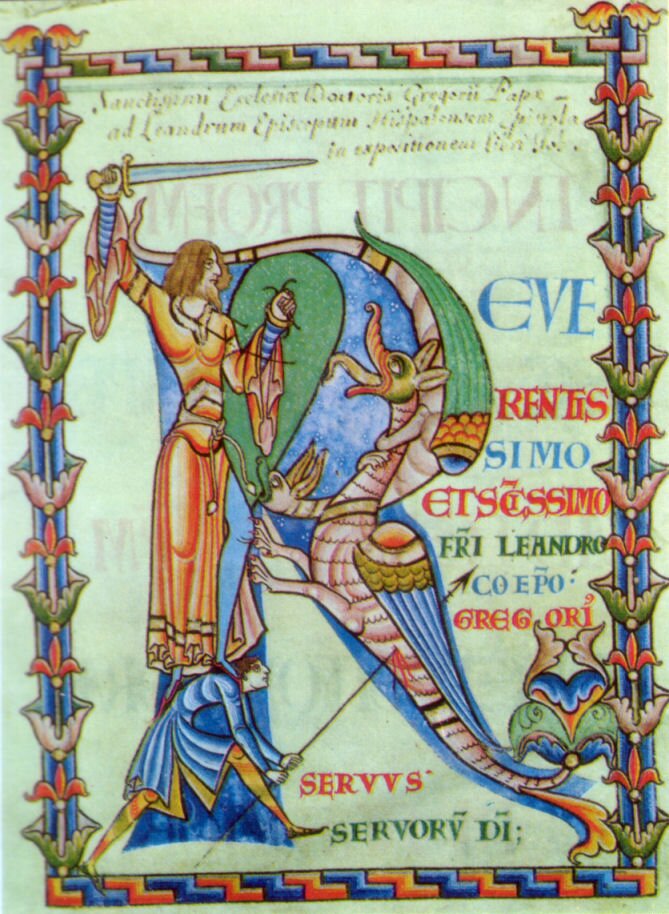 Sanctissimi Ecclesiæ Doctoris Gregorii Papæ
ad Leandrum Episcopum Hispalensem Epistola
in expositionem Libri Job.
INCIPIT PROEM
R
EVE
RENTIS
SIMO
ET SC̄ISSIMO
FR̄I LEANDRO
COEP̄O:
GREGORI᾿
SERVVS
SERVORŪ DĪ;